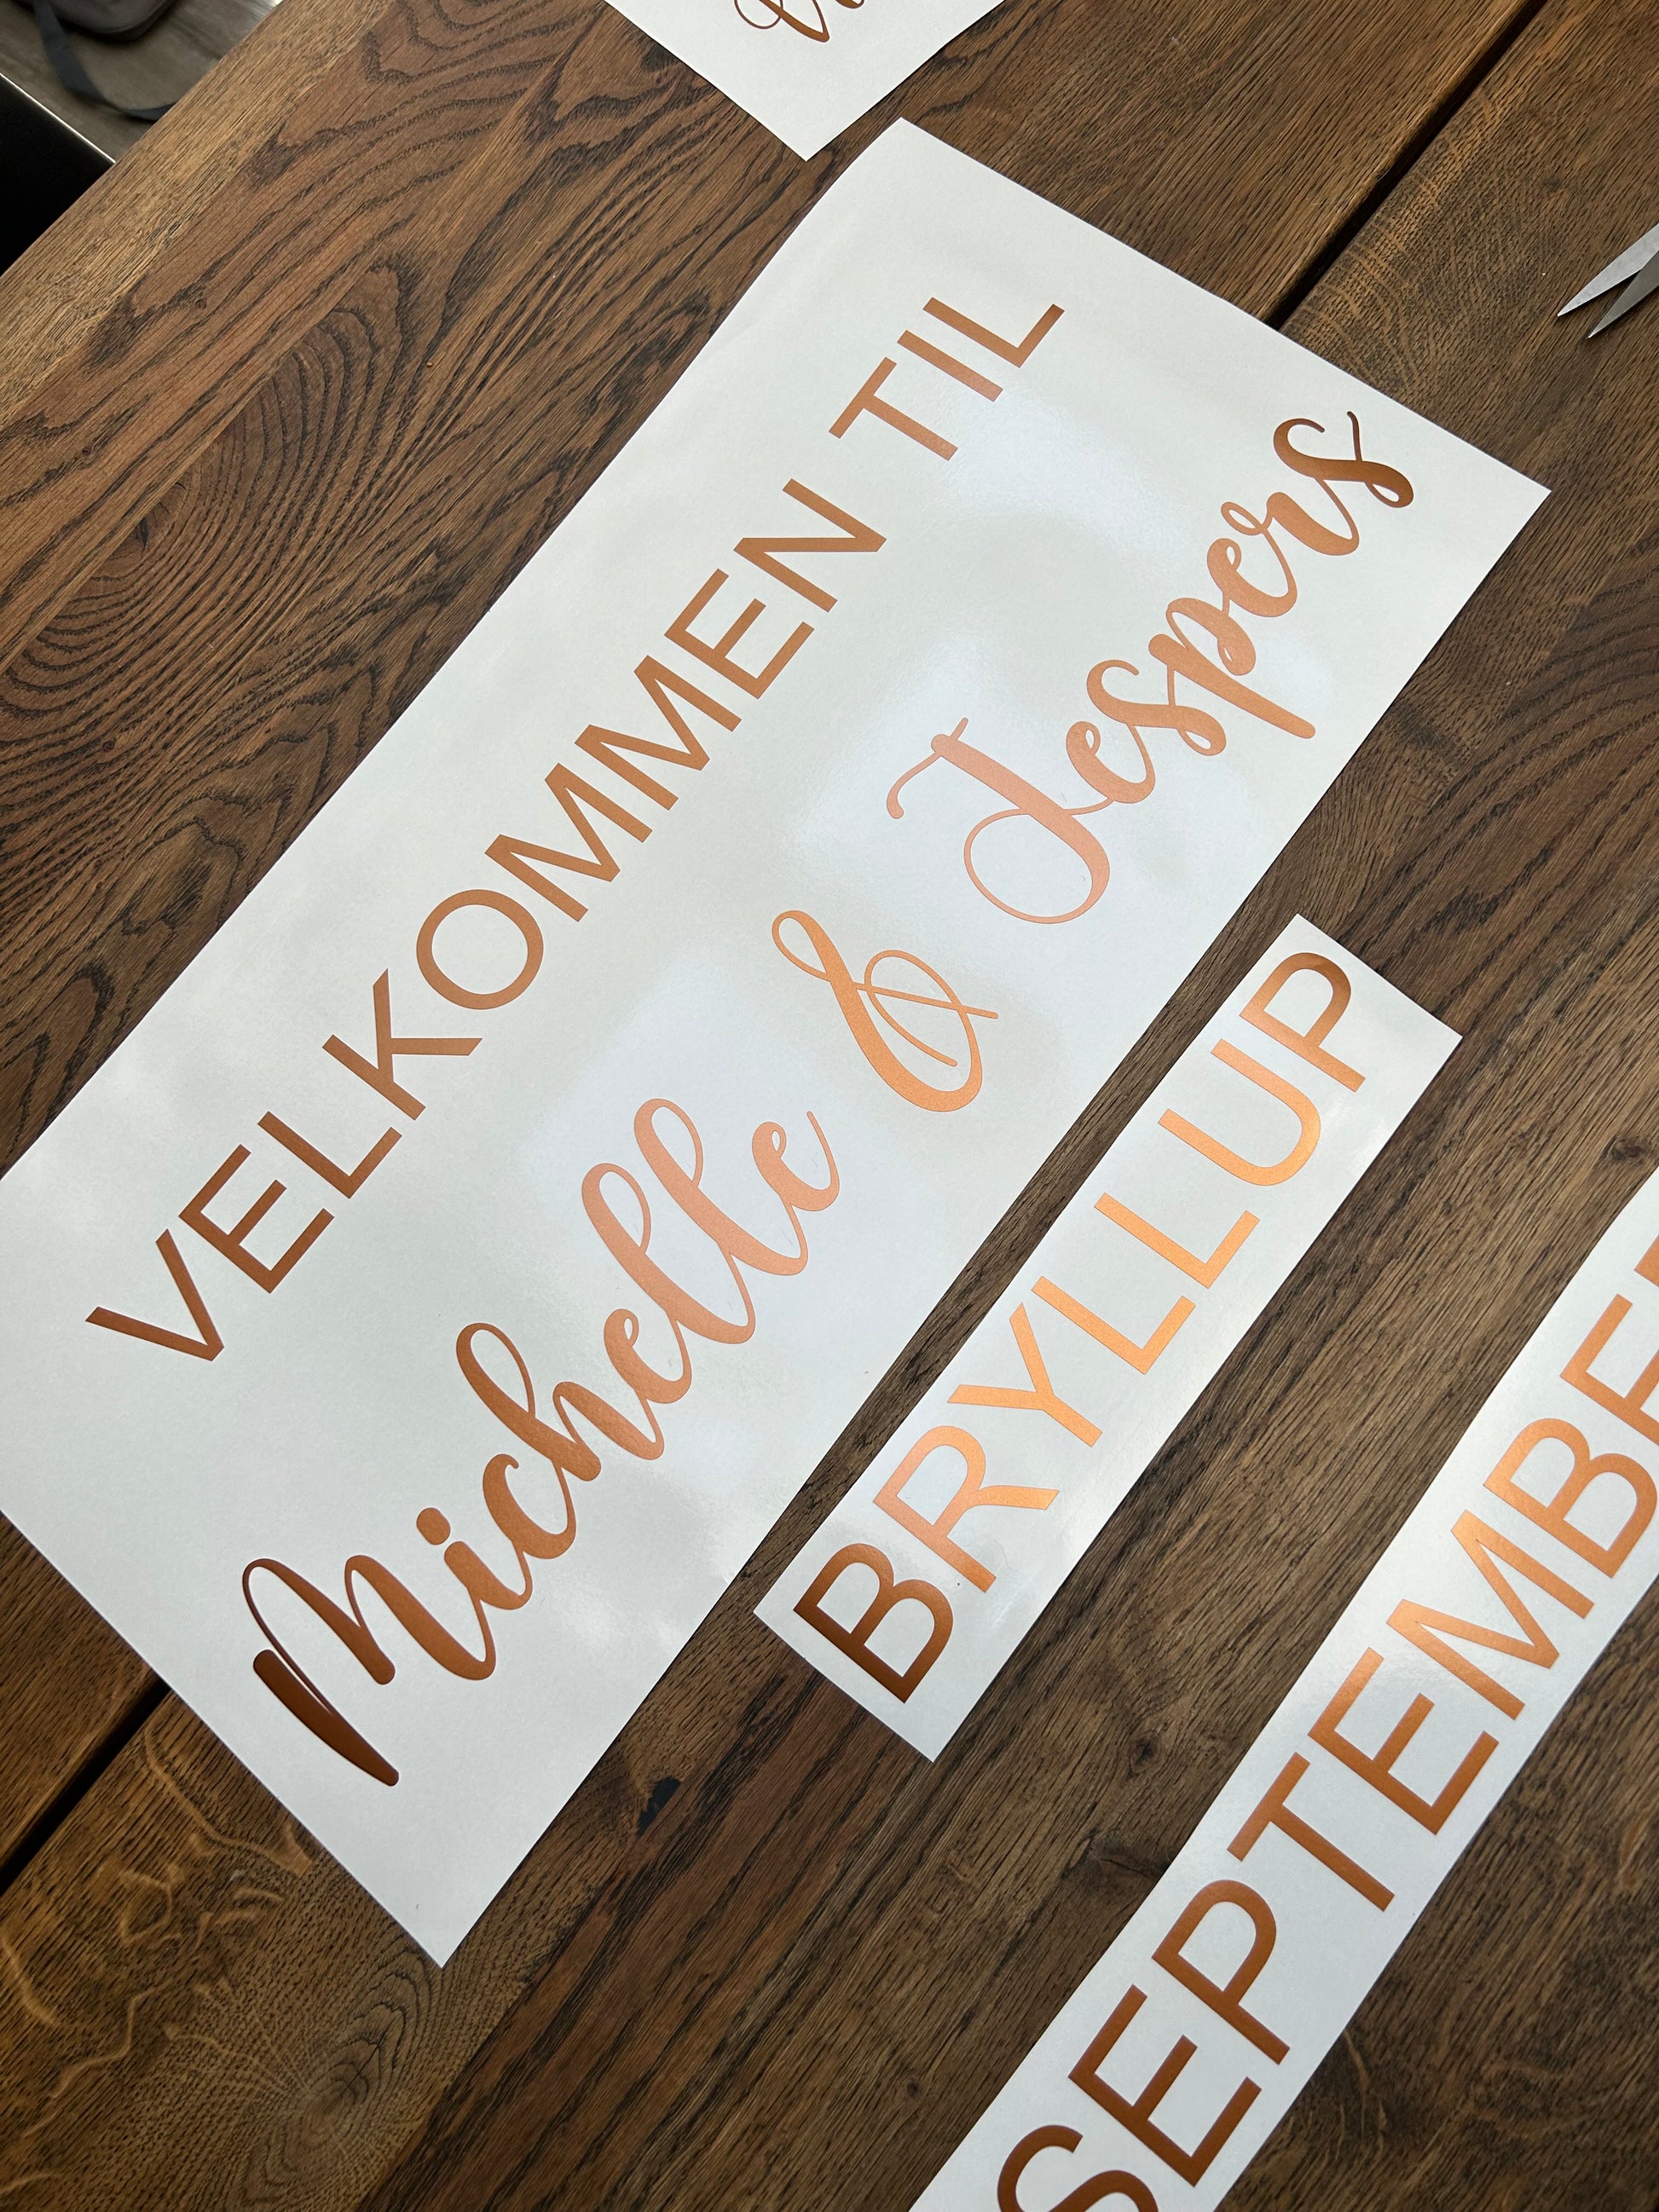 VELKOMMEN TIL
Michelle & Jespers
BRYLLUP
SEPTEMBE